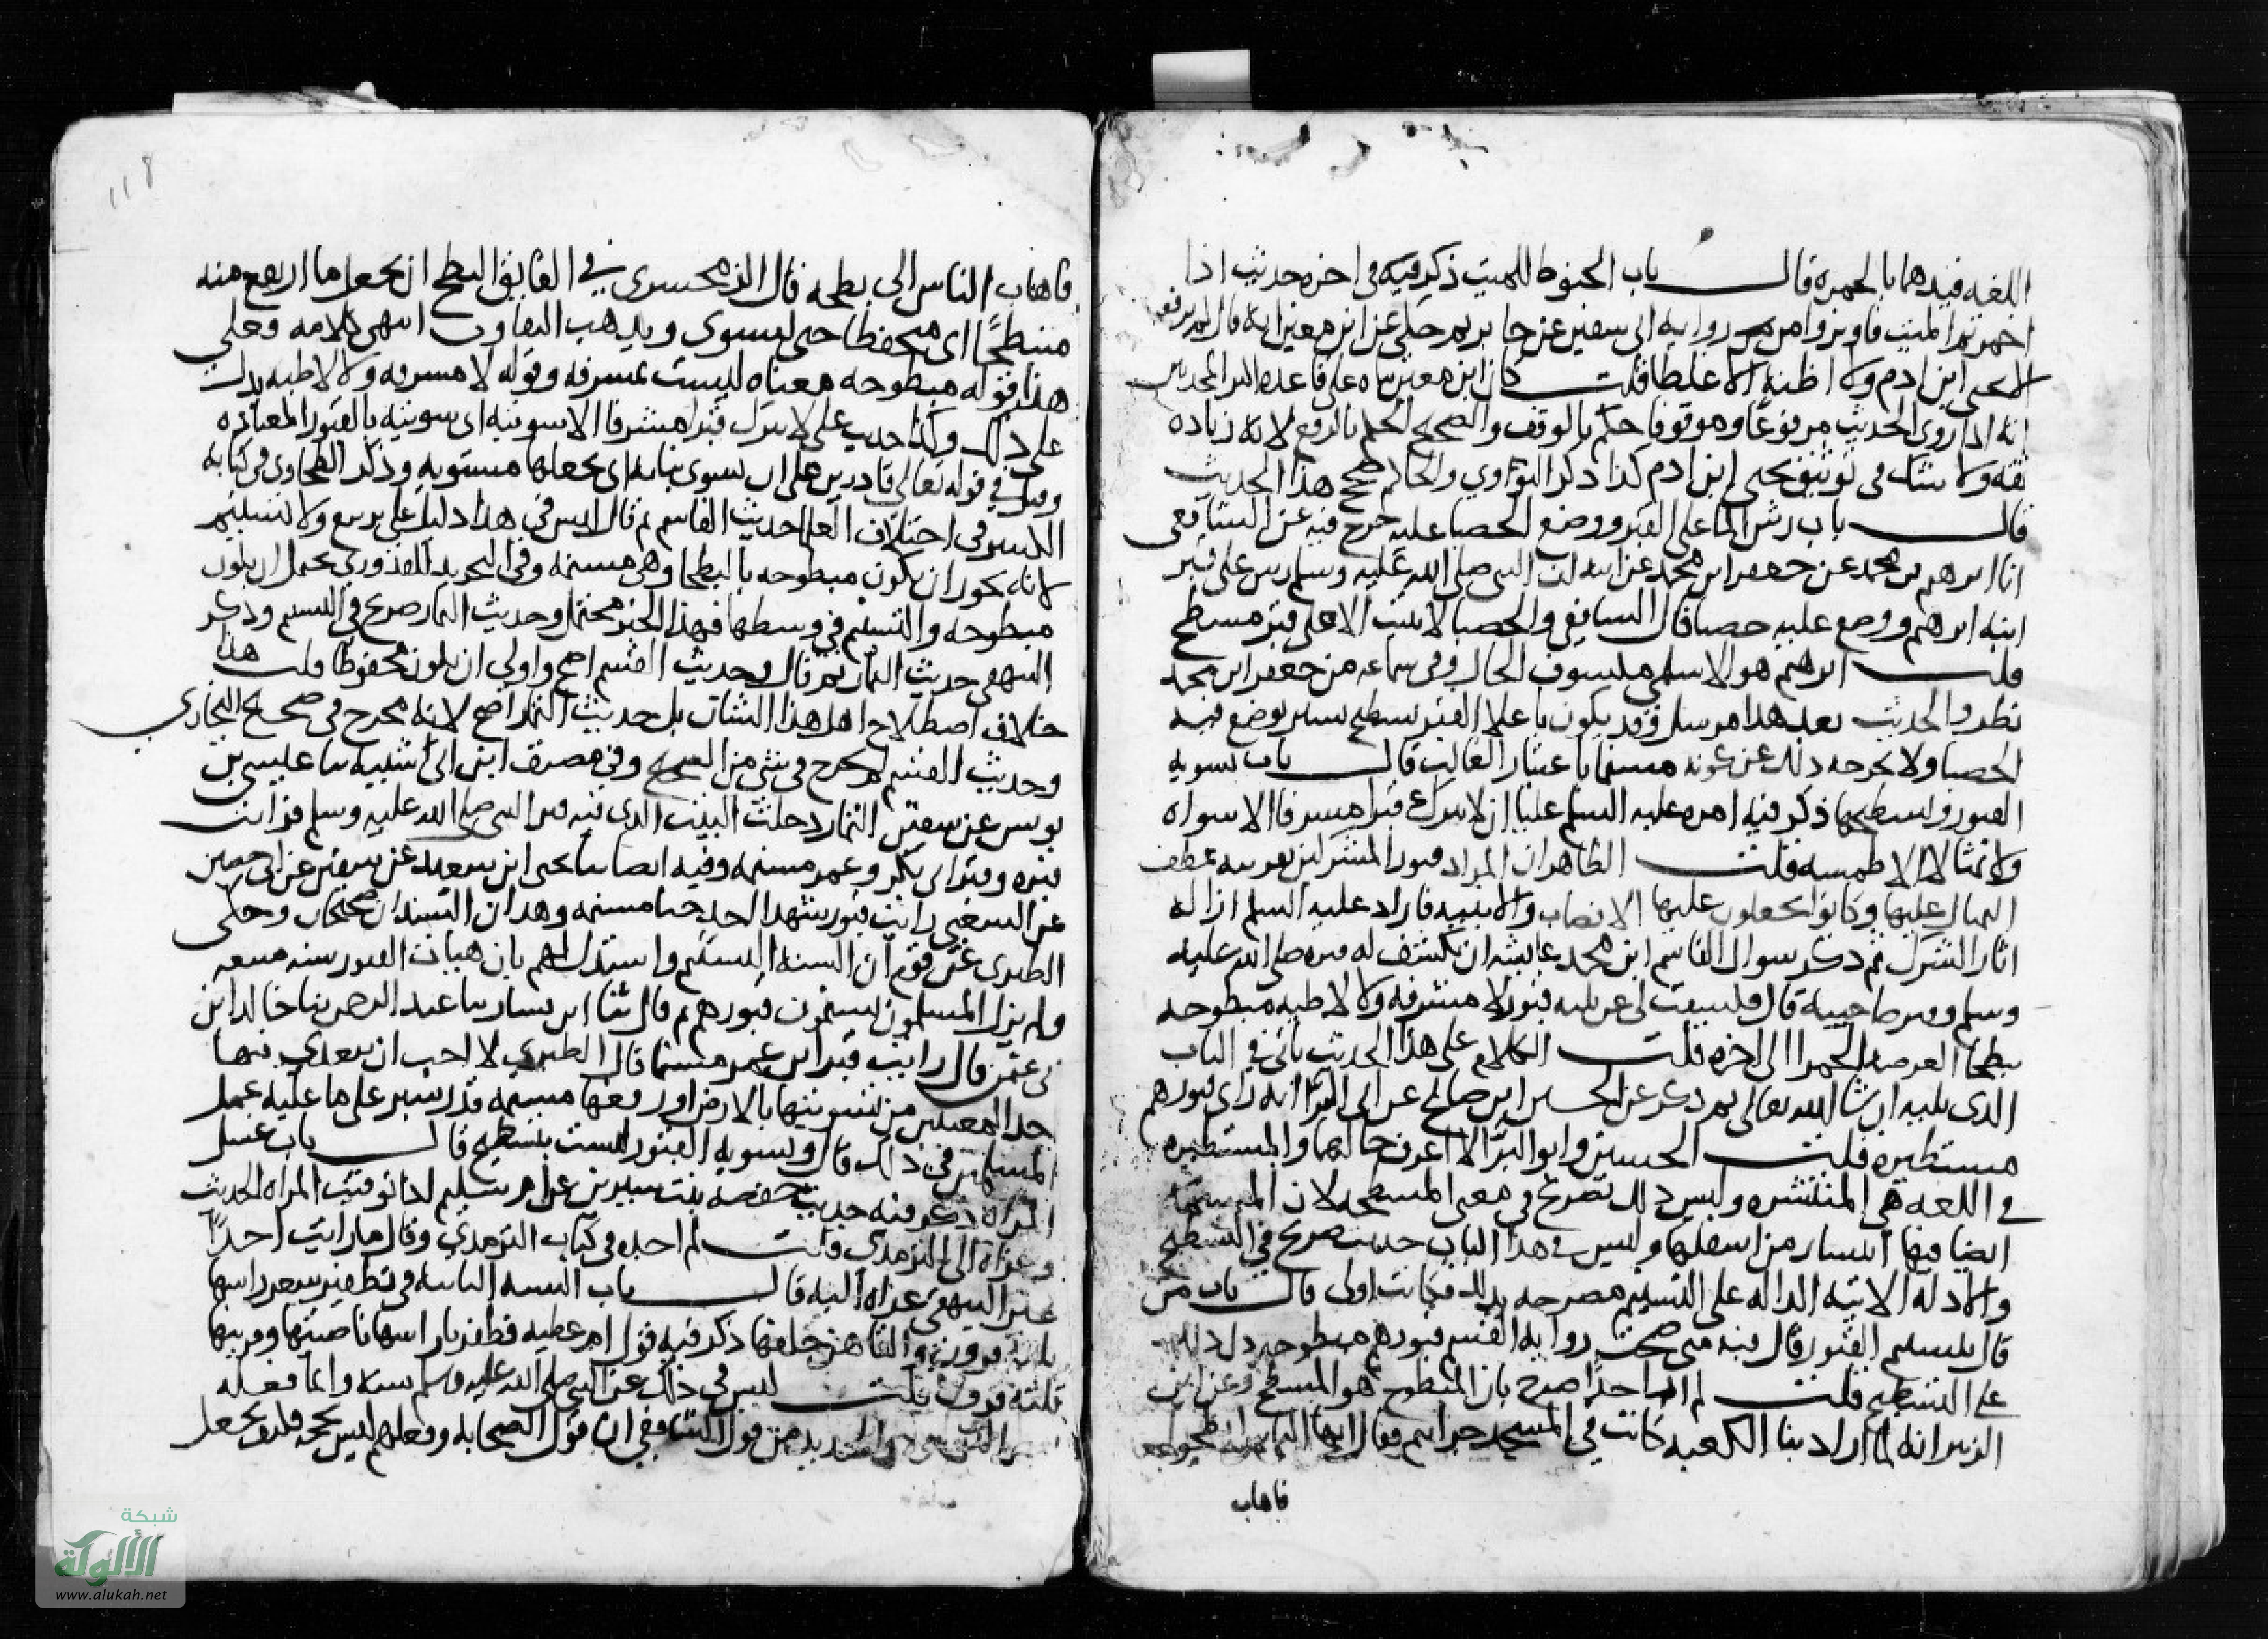 اللغه قيدهما بالحمره قال باب الحنوط للميت ذكر فيه في اخره حديث اذا
اجمرتم الميت فاوتروا من رواية ابي سفين عن جابر ثم حكى عن ابن معين انه قال لم يرفعه
الا يحيى ابن ادم ولا اظنه الا غلطا قلت كان ابن معين بناه على قاعدة اكثر المحدثين
انه اذا روى الحديث مرفوعا وموقوفا حكم بالوقف والصحيح الحكم بالرفع لانه زياده
ثقه ولا شك في توثيق يحيى ابن ادم كذا ذكر النواوي والحاكم صحح هذا الحديث
قال باب رش الماء على القبر ووضع الحصبا عليه خرج فيه عن الشافعي
انا ابرهيم بن محمد عن جعفر ابن محمد عن ابيه ان النبي صلى الله عليه وسلم رش على قبر
ابنه ابرهيم ووضع عليه حصبا قال الشافعي والحصبا لا تثبت الا على قبر مسطح
قلت ابرهيم هو الاسلمي مكشوف الحال وفي سماعه من جعفر ابن محمد
نظر والحديث بعد هذا مرسل وقد يكون باعلا القبر سطح يسير يوضع فيه
الحصبا ولا يخرجه ذلك عن كونه مسنما باعتبار الغالب قال باب تسويه
القبور وتسطيحها ذكر فيه امره عليه السلم عليا ان لا يترك قبرا مشرفا الا سواه
ولا تمثالا الا طمسه قلت الظاهر ان المراد قبور المشركين بقرينه عطف
التمثال عليها وكانوا يجعلون عليها الانصاب والابنيه فاراد عليه السلم ازاله
اثار الشرك ثم ذكر سوال القاسم ابن محمد عايشه ان تكشف له قبره صلى الله عليه
وسلم وقبر صاحبيه قال فكشفت لي عن ثلثه قبور لا مشرفه ولا لاطيه مبطوحه
ببطحا العرصه الحمرا الى اخره قلت الكلام على هذا الحديث ياتي في الباب
الذي يليه ان شا الله تعالى ثم ذكر عن الحسين ابن صالح عن ابي البرا انه راى قبورهم
مستطيره قلت الحسين وابو البرا لا اعرف حالهما والمستطيره
في اللغه هي المنتشره وليس ذلك تصريح في معنى المسطحه لان المسنمه
ايضا فيها انتشار من اسفلها وليس في هذا الباب حديث صريح في التسطيح
والادله الاتيه الداله على التسنيم مصرحه بذلك فكانت اولى قال باب من
قال بتسنيم القبور قال فيه متى صحت روايه القسم قبورهم مبطوحه دل ذلك
على التسطيح قلت لم ار احدا صرح بان المبطوح هو المسطح وعن ابن
الزبير انه لما اراد بنا الكعبه كانت في المسجد جراثيم فقال ايها الناس ابطحوا
فاهاب
118
فاهاب الناس الى بطحه قال الزمخشري في الفايق البطح ان يجعل ما ارتفع منه
منبطحا اي منخفضا حتى يستوي ويذهب التفاوت انتهى كلامه فعلى
هذا قوله مبطوحه معناه ليست بمشرفه وقوله لا مشرفه ولا لاطيه يدل
على ذلك وكذا حديث علي لا يترك قبرا مشرفا الا سويته اي سويته بالقبور المعتاده
وقيل في قوله تعالى قادرين على ان نسوي بنانه اي نجعلها مستويه وذكر الطحاوي في كتابه
الكبير في اختلاف العلما حديث القاسم ثم قال ليس في هذا دليل على تربيع ولا تسنيم
لانه يجوز ان يكون مبطوحه بالبطحا وهي مسنمه وفي التجريد للقدوري يحتمل ان يكون
مبطوحه والتسنيم في وسطها فهذا الخبر محتمل وحديث التمار صريح في التسنيم وذكر
البيهقي حديث التمار ثم قال وحديث القسم اصح واولى ان يكون محفوظا قلت هذا
خلاف اصطلاح اهل هذا الشان بل حديث التمار اصح لانه مخرج في صحيح البخاري
وحديث القسم لم يخرج في شي من الصحيح وفي مصنف ابن ابي شيبه ثنا عيسى بن
يونس عن سفين التمار دخلت البيت الذي فيه قبر النبي صلى الله عليه وسلم فرايت
قبره وقبر ابي بكر وعمر مسنمه وفيه ايضا ثنا يحيى ابن سعيد عن سفين عن ابي حصين
عن الشعبي رايت قبور شهدا احد جثا مسنمه وهذان السندان صحيحان وحكى
الطبري عن قوم ان السنه التسنيم واستدل لهم بان هيات القبور سنه متبعه
ولم يزل المسلمون يسنمون قبورهم ثم قال ثنا ابن بشار ثنا عبد الرحمن ثنا خالد ابن
ابي عثمن قال رايت قبر ابن عمر مسنما قال الطبري لا احب ان يتعدى فيها
احد المعنيين من تسويتها بالارض او رفعها مسنمه قدر شبر على ما عليه عمل
المسلمين في ذلك قال وتسويه القبور ليست بتسطيح قال باب غسل
المراه ذكر فيه حديث حفصه بنت سيرين عن ام سليم اذا توفيت المراه الحديث
وعزاه الى الترمذي قلت لم اجده في كتاب الترمذي وقال ما رايت احدا
غير البيهقي عزاه اليه قال باب السنه الثابته في تضفير شعر راسها
ثلثه قرون والقاهن خلفها ذكر فيه قول ام عطيه فضفرنا راسها ناصيتها وقرنيها
ثلثه قرون قلت ليس في ذلك عن النبي صلى الله عليه وسلم سنه وانما فعله
من قول الشافعي ان قول الصحابه وفعلهم ليس بحجه فكيف يجعل
شبكة
الألوكة
www.alukah.net